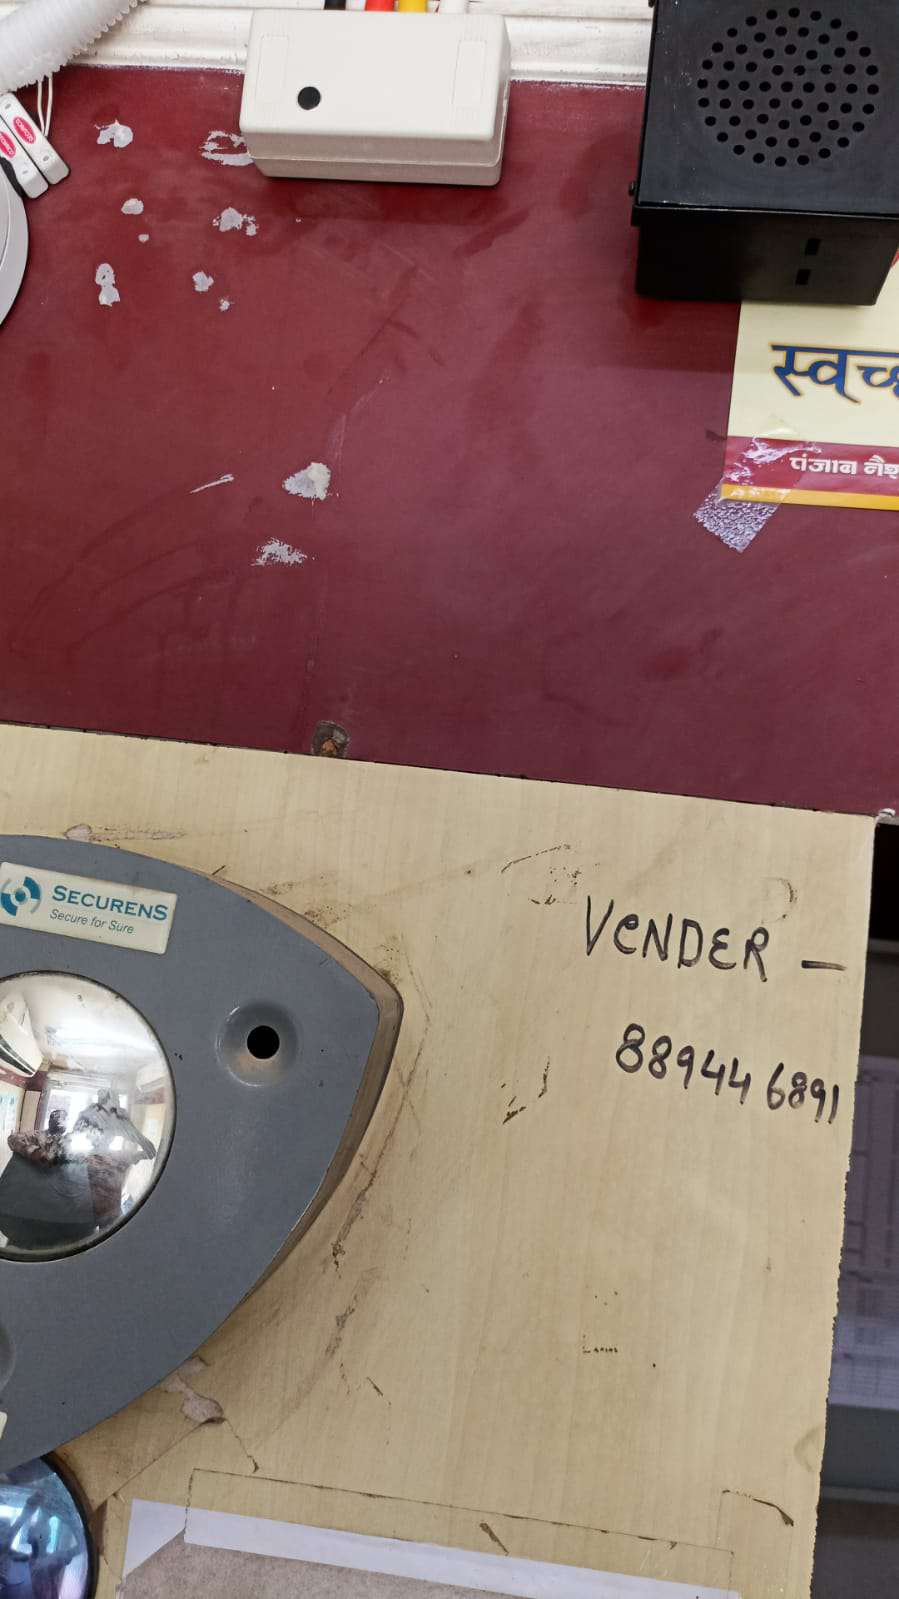 स्वच्छ
पंजाब नैश
SECURENS
Secure for Sure
VENDER -
889446891